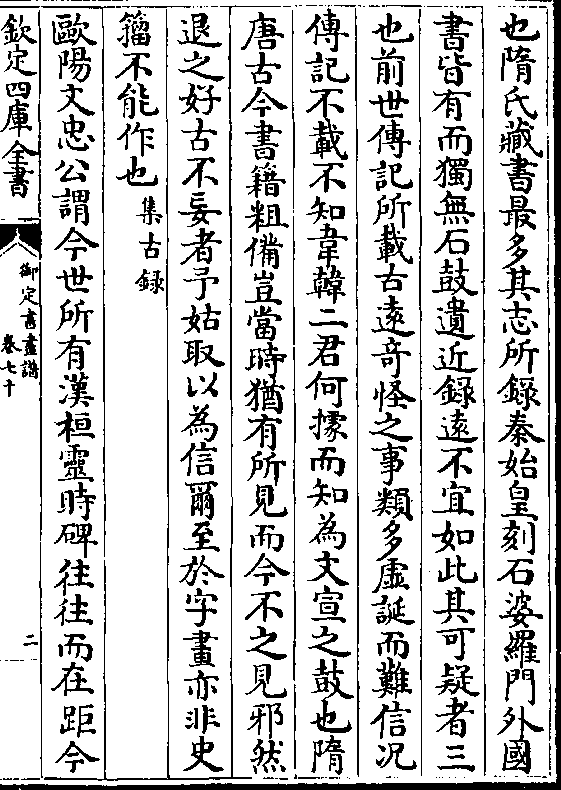 也隋氏藏書最多其志所錄秦始皇刻石婆羅門外國
書皆有而獨無石鼓遺近錄遠不宜如此其可疑者三
也前世傳記所載古遠奇怪之事類多虛誕而難信况
傳記不載不知韋韓二君何據而知為文宣之鼓也隋
唐古今書籍粗備豈當時猶有所見而今不之見邪然
退之好古不妄者予姑取以為信爾至於字畫亦非史
籀不能作也集古録
歐陽文忠公謂今世所有漢桓靈時碑往往而在距今
欽定四庫全書
御定書畫譜
卷七十
二